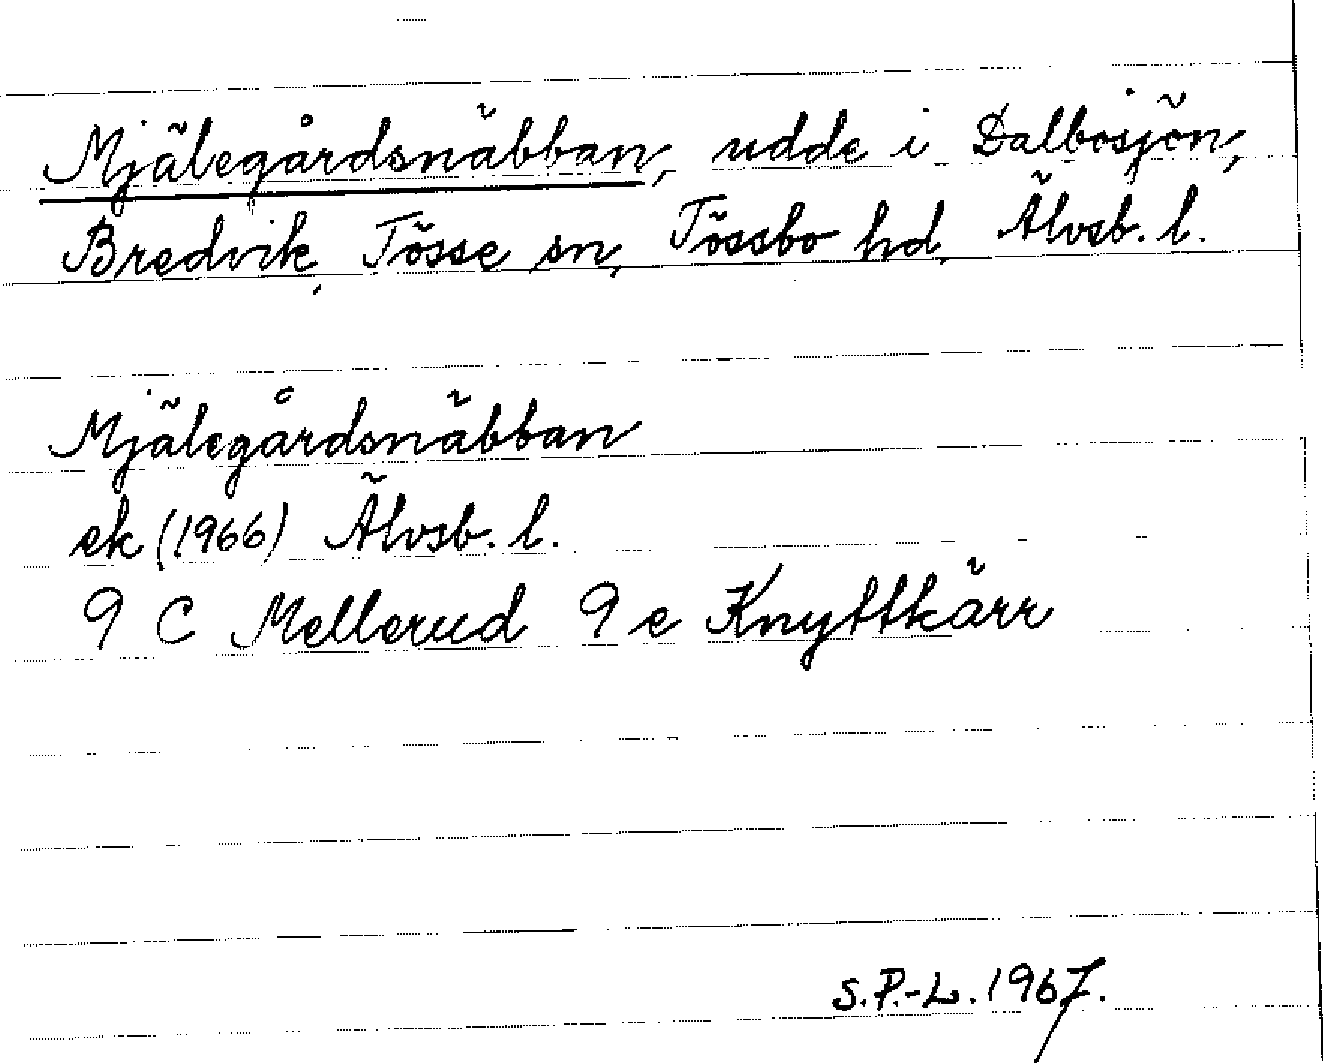 Mjälegårdsnäbban, udde i Dalbosjön,
Bredvik, Tösse sn, Tössbo hd, Älvsb. l.
Mjälegårdsnäbban
ek (1966) Älvsb. l.
9 C Mellerud 9 e Knyttkärr
S.P.-L. 1967.